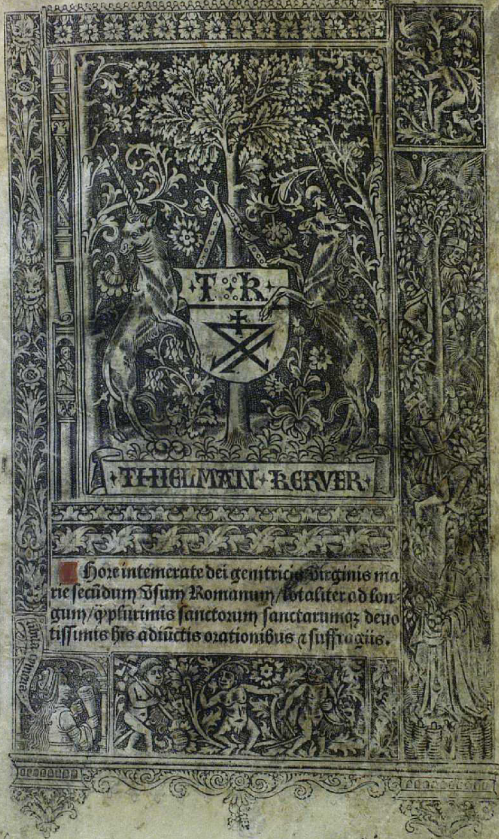 T R
THIELMAN KERVER
Hore intemerate dei genitricis Virginis ma
rie secūdum Vsum Romanum / totaliter ad lon
gum / cū plurimis sanctorum sanctarumqꝫ deuo
tissimis his adiūctis orationibus ⁊ suffragiis.